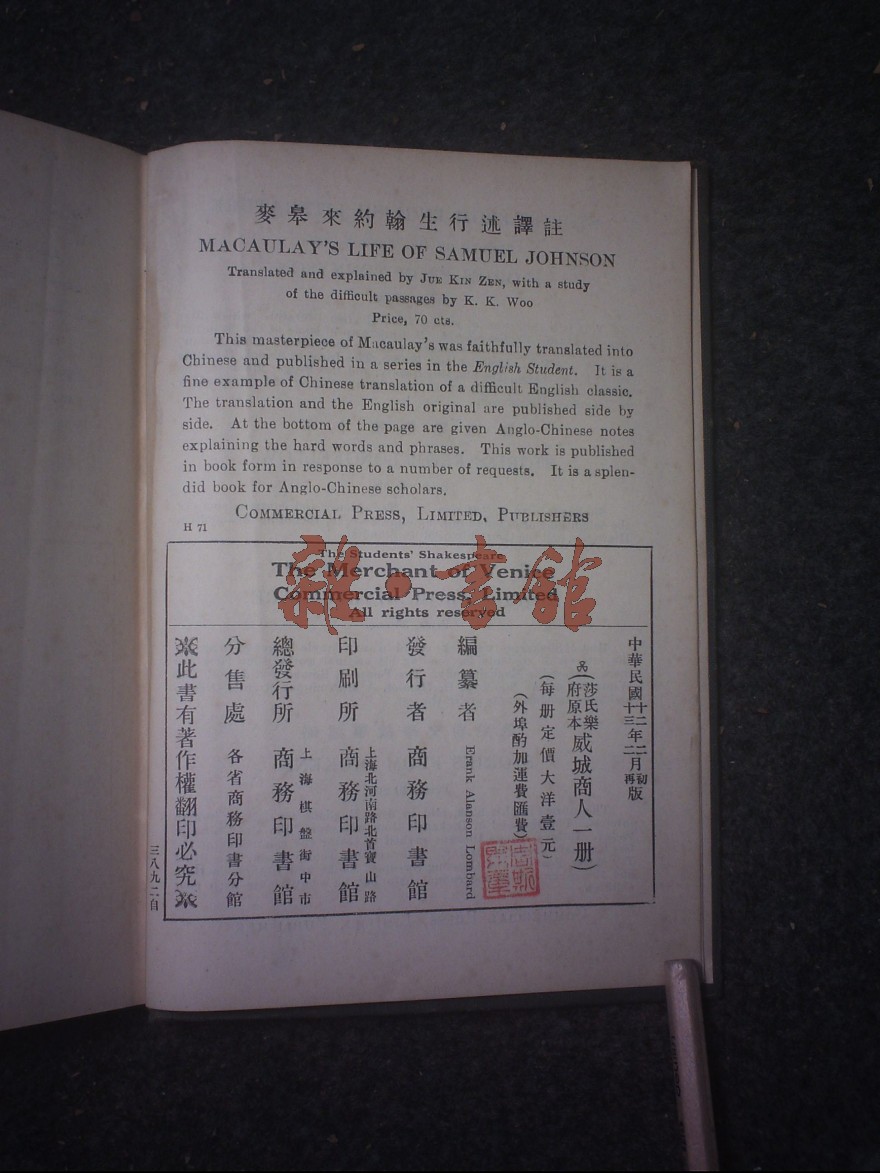 麥皋來約翰生行述譯註
MACAULAY'S LIFE OF SAMUEL JOHNSON
Translated and explained by JUE KIN ZEN, with a study
of the difficult passages by K. K. Woo
Price, 70 cts.
This masterpiece of Macaulay's was faithfully translated into
Chinese and published in a series in the English Student. It is a
fine example of Chinese translation of a difficult English classic.
The translation and the English original are published side by
side. At the bottom of the page are given Anglo-Chinese notes
explaining the hard words and phrases. This work is published
in book form in response to a number of requests. It is a splen-
did book for Anglo-Chinese scholars.
COMMERCIAL PRESS, LIMITED, PUBLISHERS
H 71
The Students' Shakespeare
The Merchant of Venice
Commercial Press, Limited
All rights reserved
雜·書館
中華民國十二年二月初版
十三年二月再版
(莎氏樂府原本威城商人一册)
(每册定價大洋壹元)
(外埠酌加運費匯費)
編纂者 Erank Alanson Lombard
發行者 商務印書館
印刷所 上海北河南路北首寶山路 商務印書館
總發行所 上海棋盤街中市 商務印書館
分售處 各省商務印書分館
※此書有著作權翻印必究※
三八九二自